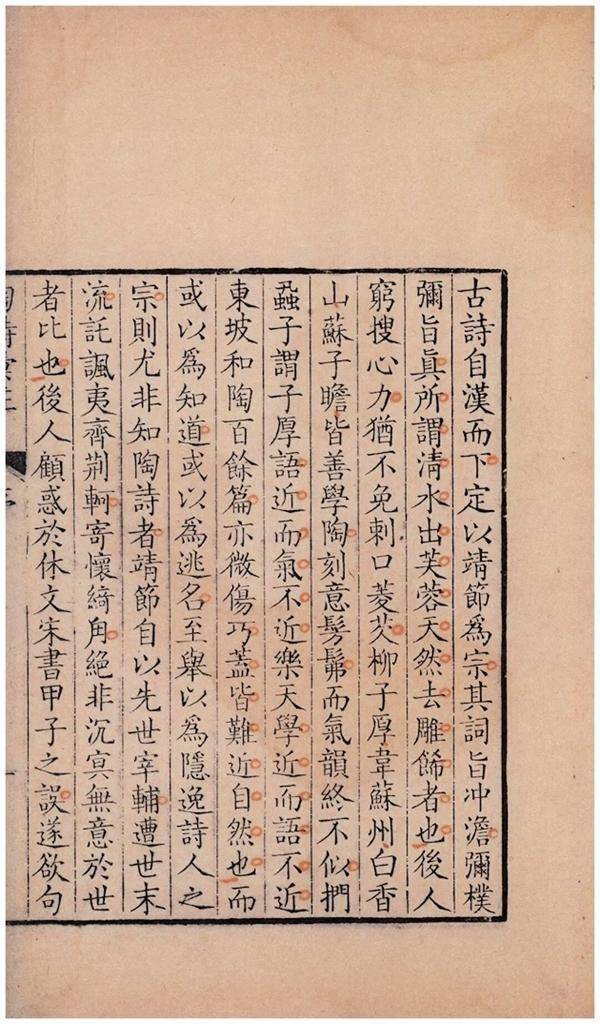 古詩自漢而下定以靖節爲宗其詞旨冲澹彌樸
彌旨眞所謂清水出芙蓉天然去雕餙者也後人
窮搜心力猶不免刺口菱芡柳子厚韋蘇州白香
山蘇子瞻皆善學陶刻意髣髴而氣韻終不似捫
蝨子謂子厚語近而氣不近樂天學近而語不近
東坡和陶百餘篇亦微傷巧蓋皆難近自然也而
或以爲知道或以爲逃名至舉以爲隱逸詩人之
宗則尤非知陶詩者靖節自以先世宰輔遭世末
流託諷夷齊荆軻寄懷綺角絕非沉冥無意於世
者比也後人顧惑於休文宋書甲子之誤遂欲句
陶詩